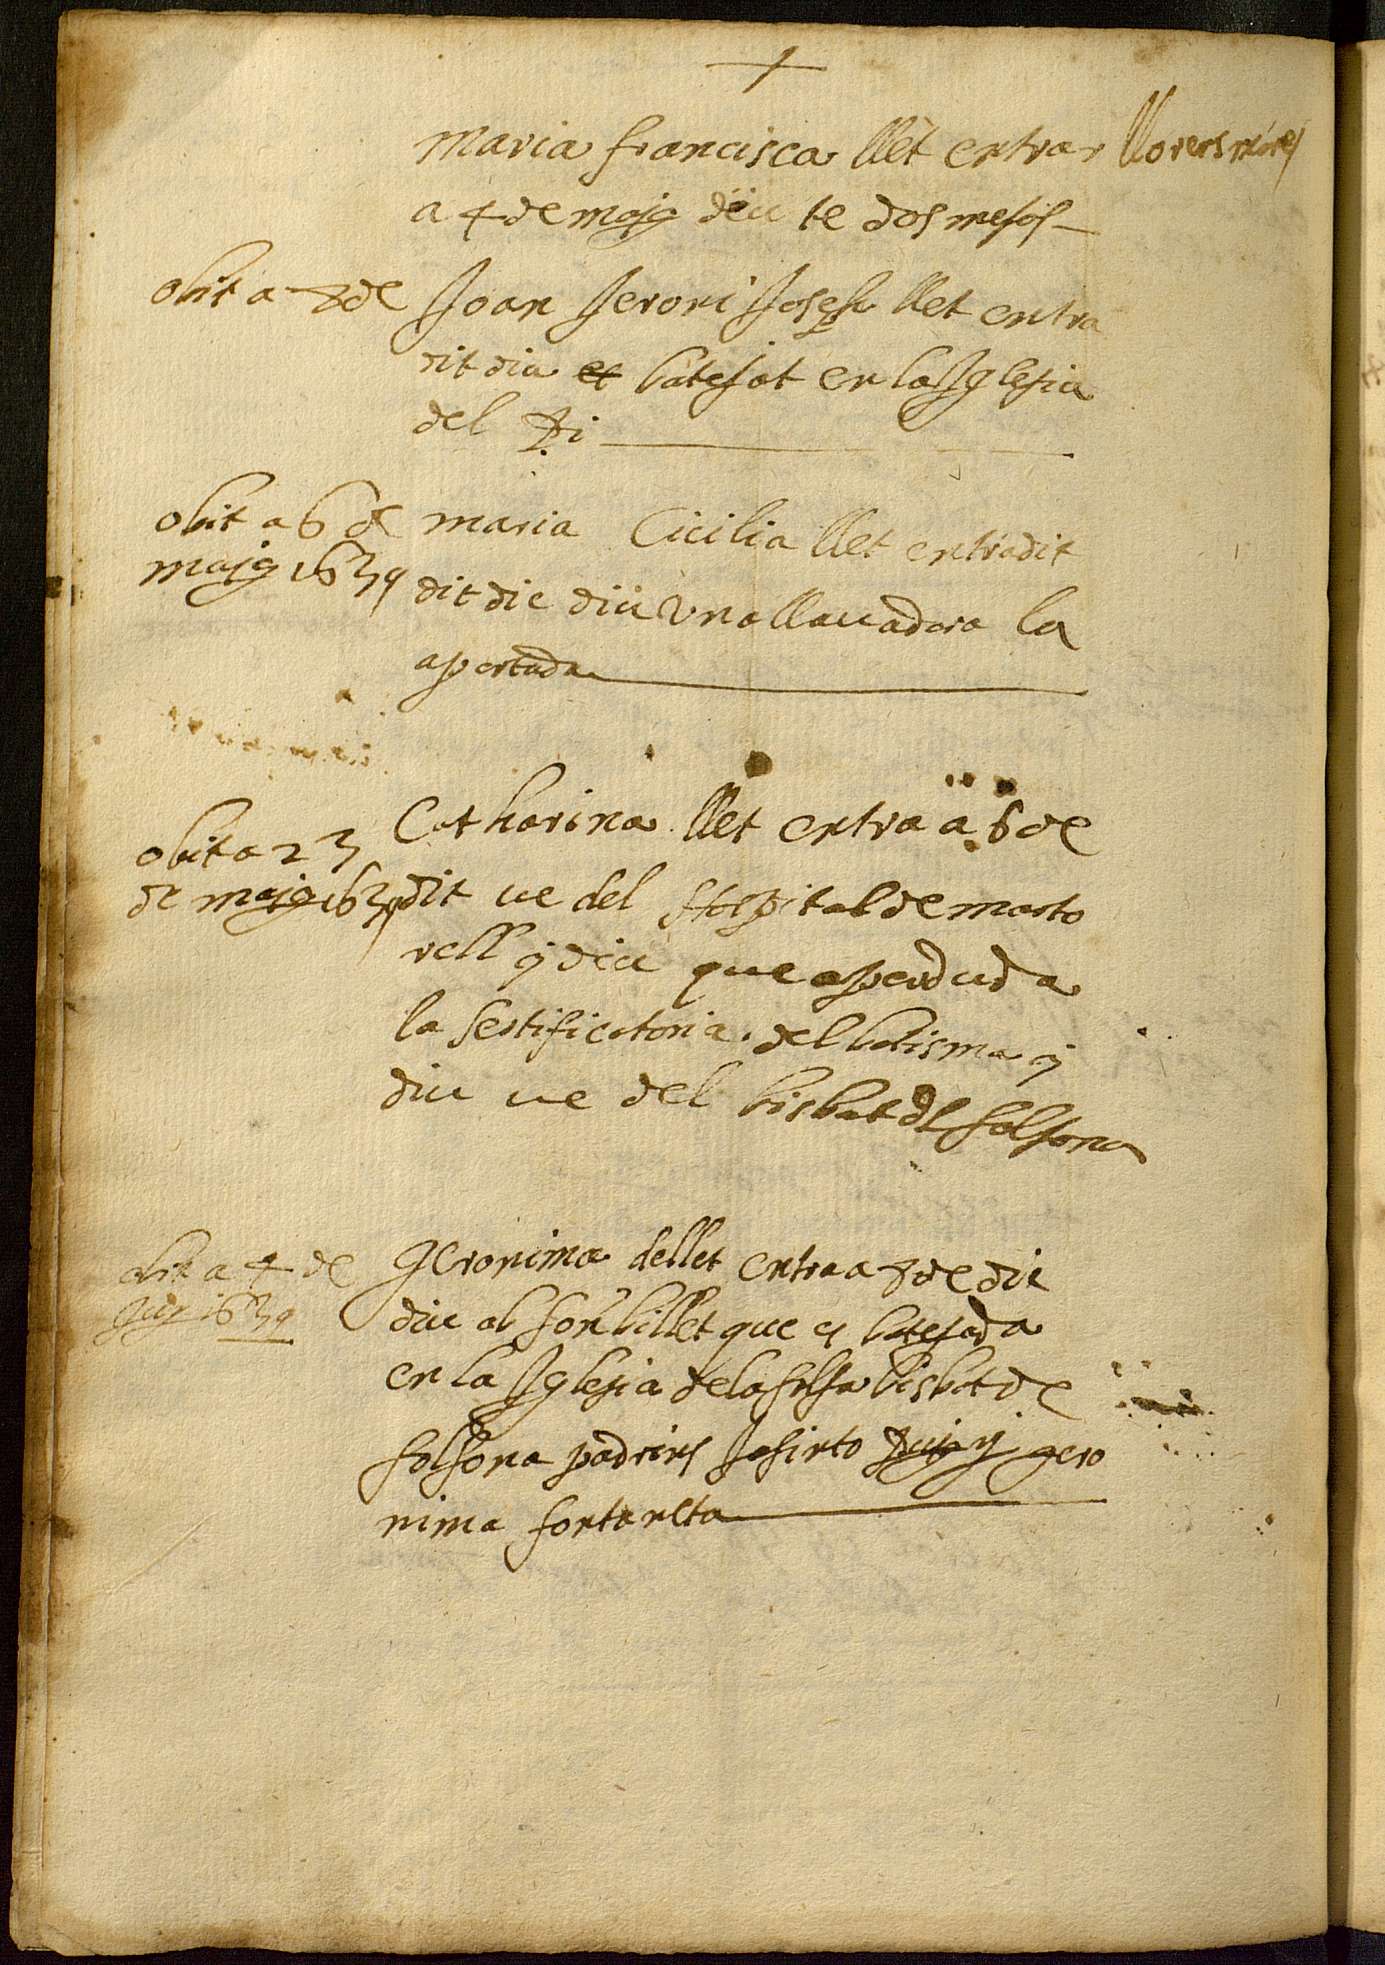 Maria francisca llet entra
a 4 de maig diu te dos mesos
obit a 8 de
Joan Jeroni Joseph llet entra
dit dia et batejat en la Iglesia
del Pi
obit a 6 de
maig 1639
maria Cicilia llet entra dit
dit die diu una llauadora la
aportada
obit a 23
de maig 1639
Catharina llet entra a 6 de
dit ve del Hospital de marto
rell y diu que a perduda
la sertificatoria del batisma y
diu ve del bisbat de solsona
obit a 4 de
Juny 1639
Geronima de llet entra a 8 de dit
diu ab son billet que es batejada
en la Iglesia de la bisbat de
solsona padrins Jasinto Puig y gero
nima